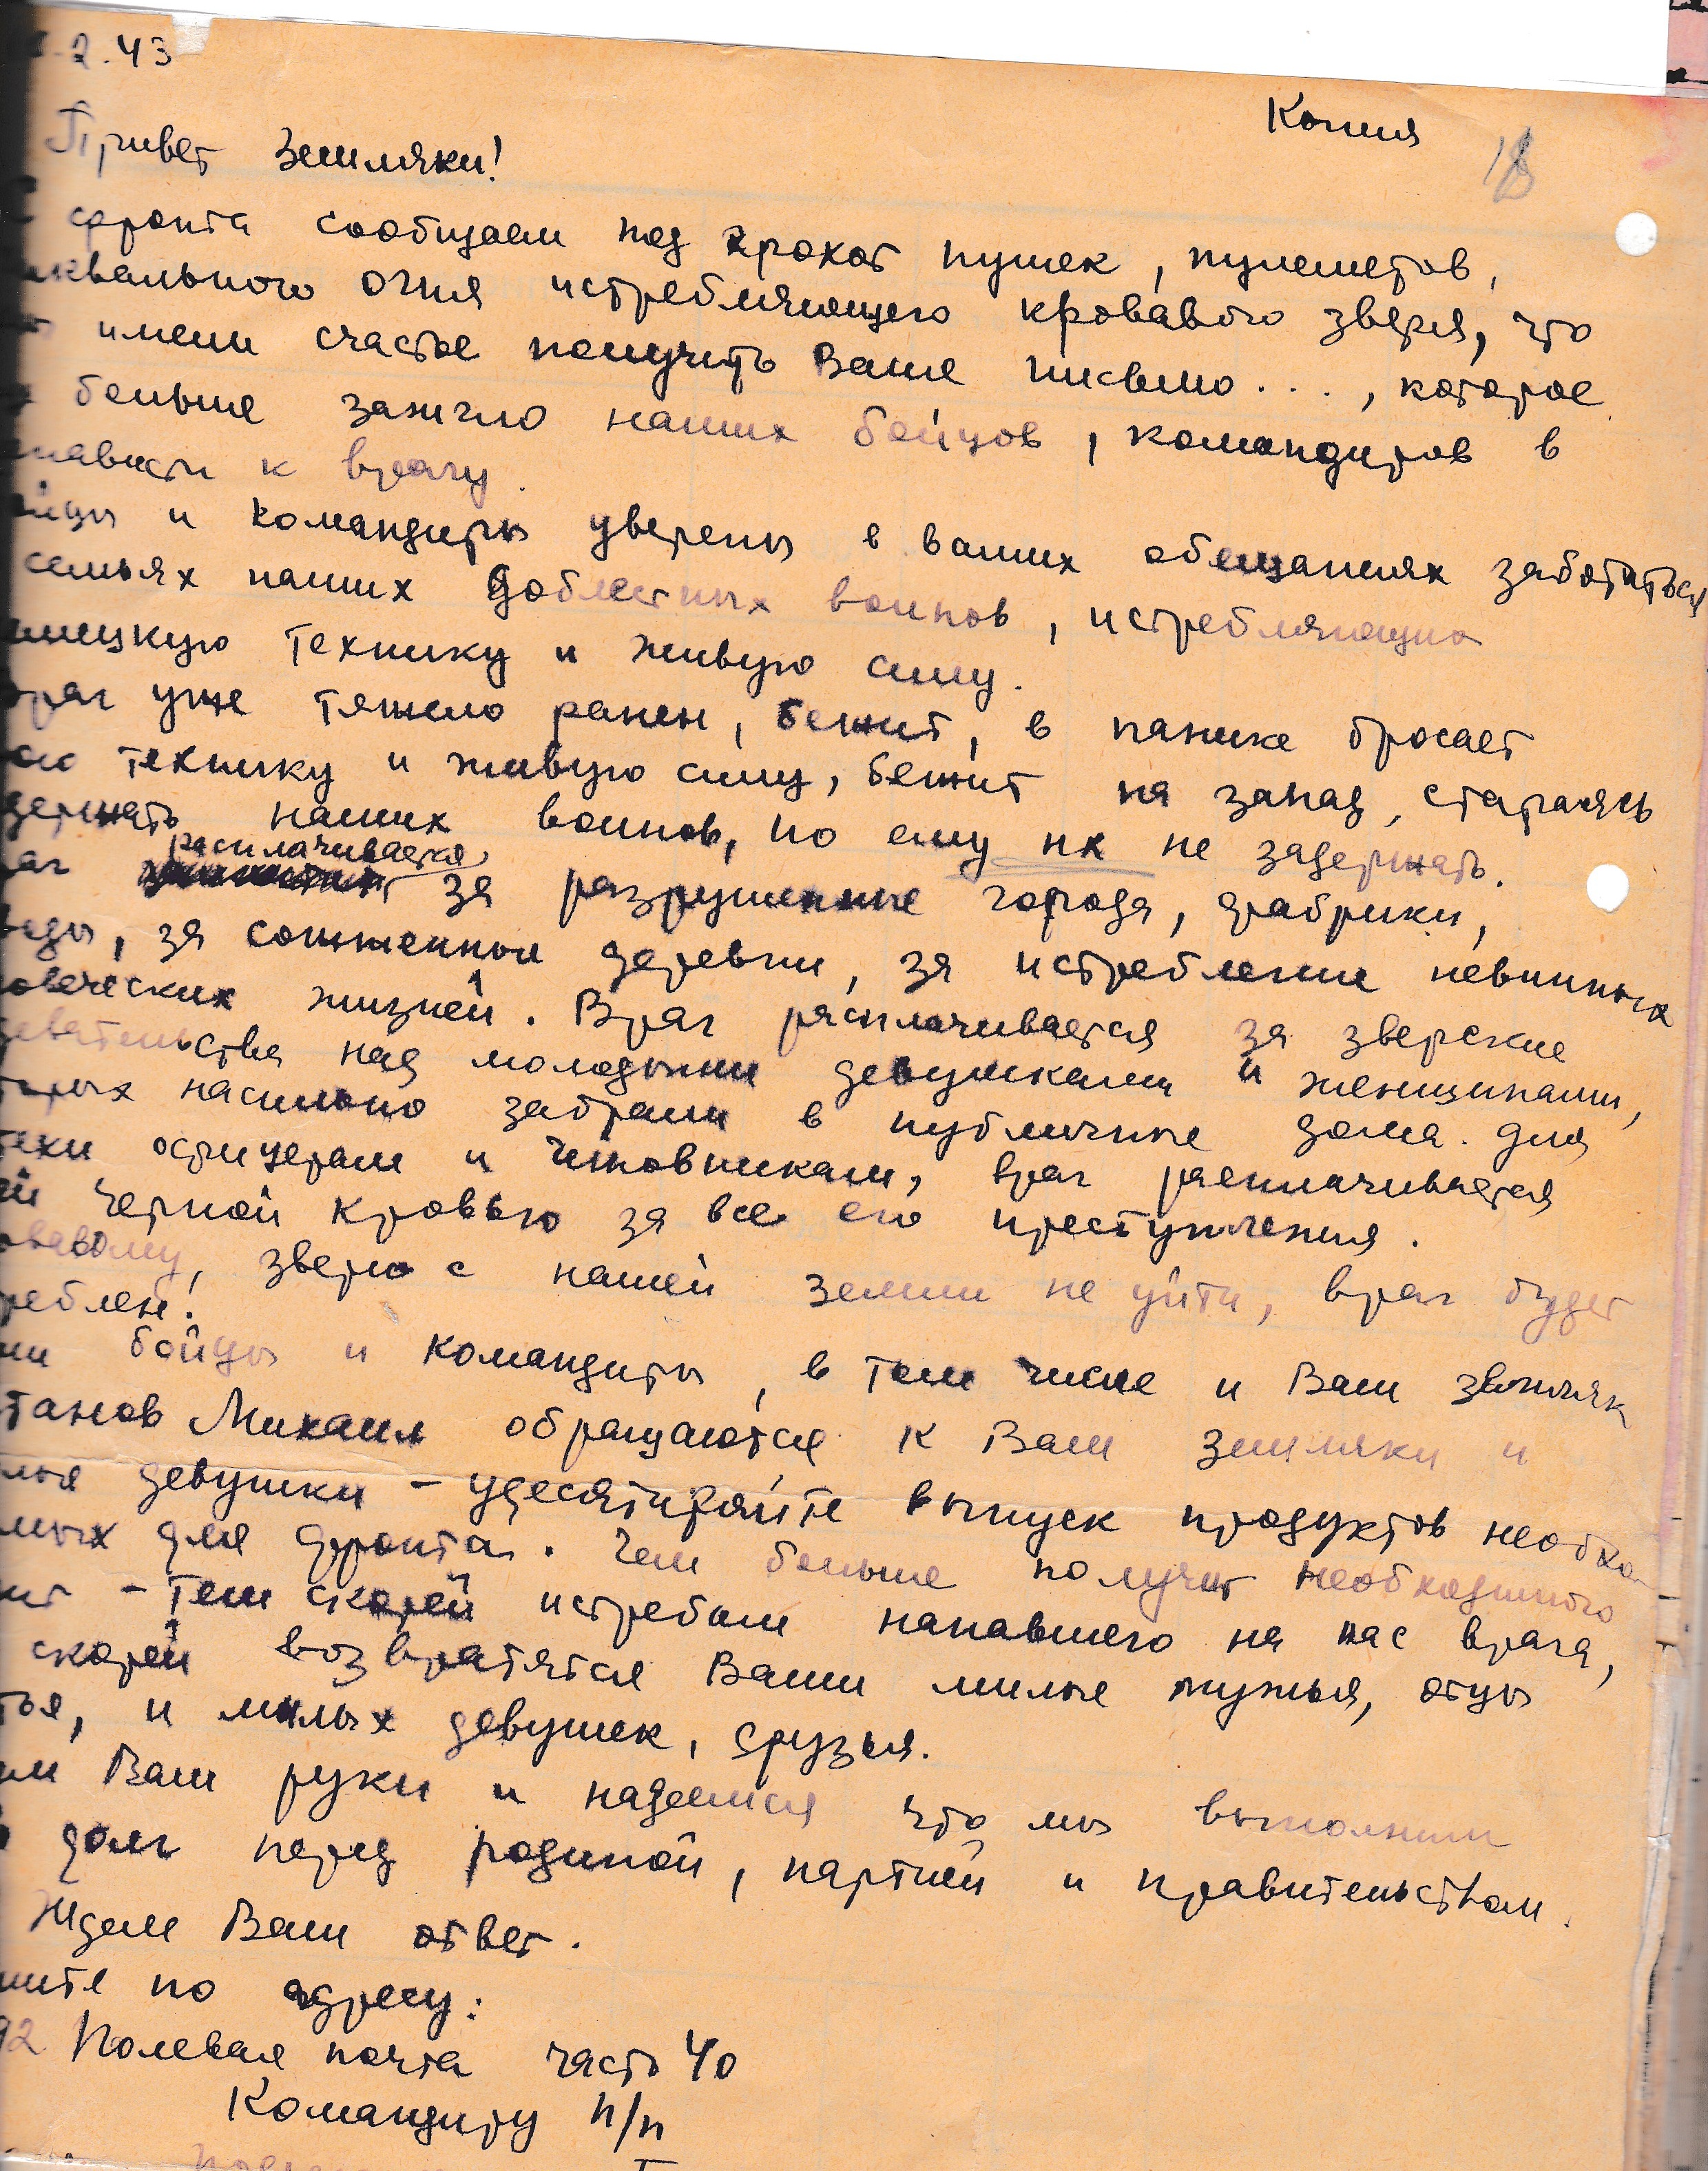 -2.43
Копия
18
Привет земляки!
фронта сообщаем под грохот пушек, пулеметов,
квального огня истребляющего кровавого зверя, что
имели счастье получить Ваше письмо..., которое
больше зажгло наших бойцов, командиров в
нависти к врагу.
йцы и командиры уверены в ваших обещаниях заботиться
семьях наших доблестных воинов, истребляющих
мецкую технику и живую силу.
враг уже тяжело ранен, бежит, в панике бросает
ою технику и живую силу, бежит на запад, стараясь
держать наших воинов, но ему их не задержать.
аг расплачивается за разрушенные города, фабрики,
воды, за сожженные деревни, за истребление невинных
овеческих жизней. Враг расплачивается за зверские
девательства над молодыми девушками и женщинами,
торых насильно забрали в публичные дома для
техи офицерам и чиновникам, враг расплачивается
ей черной кровью за все его преступления.
овавому, зверю с нашей земли не уйти, враг будет
реблен!
ши бойцы и командиры, в том числе и Ваш земляк
танов Михаил обращаются к Вам земляки и
лые девушки - удесятиряйте выпуск продуктов необхо-
мых для фронта. Чем больше получит необходимого
нт - тем скорей истребим напавшего на нас врага,
скорей возвратятся Ваши милые мужья, отцы
тья, и милых девушек, друзья.
ем Вам руки и надеемся что мы выполним
долг перед родиной, партией и правительством.
Ждем Ваш ответ.
шите по адресу:
92 Полевая почта часть 40
Командиру п/п